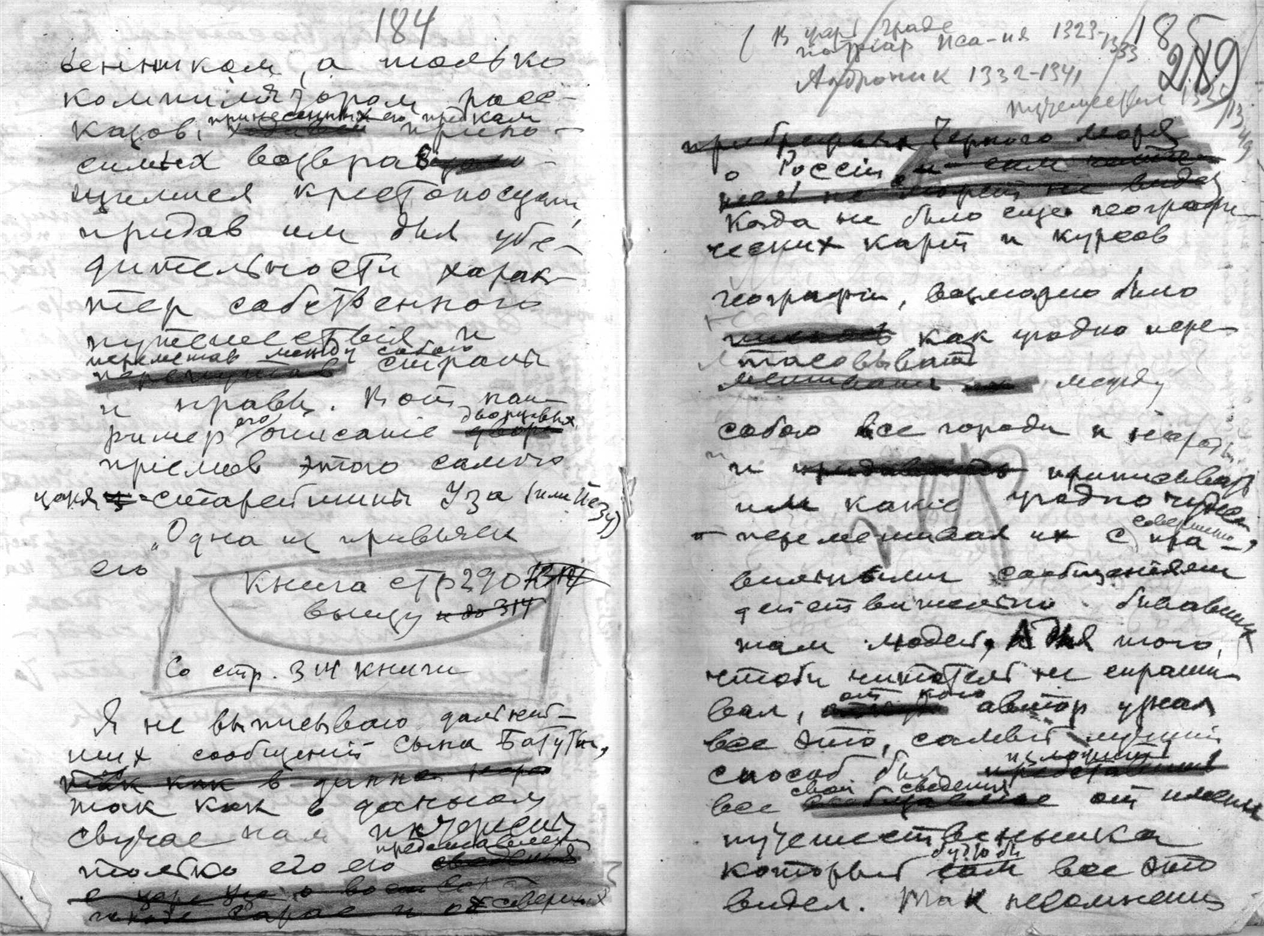 184
венником, а только
компилятором расс-
казов, принесенных его предкам
симых возвра
щимися крестоносцами,
придав им для убе-
дительности харак-
тер собственного
путешествия и
перемешав между собою
страны
и нравы. Вот нап-
ример его описание дворцовых
приемов этого самого
царя-старейшины Уза (или
„Одна из привычек
его
Книга стр 290
выписку и до 314
Со стр. 314 книги
Я не выписываю дальней-
ших сообщений сына Батуты,
так как в данном
случае нам интересны
только его его представления
185
289
1323-1333
Андроник 1332-1341
прибрежья Черного моря
о России
Когда не было еще географи-
ческих карт и курсов
географии, возможно было
как угодно пере-
тасовывать
между
собою все города и народы
и приписывать
им какие угодно чудеса
перемешивая их с совершенно пра-
вильными сообщениями
действительно бывавших
там людей, А для того,
чтоб читатель не спраши-
вал, от кого автор узнал
все это, самый лучший
способ был изложить
все свои сведения от имени
путешественника
который будто бы сам все это
видел. Так несомненно